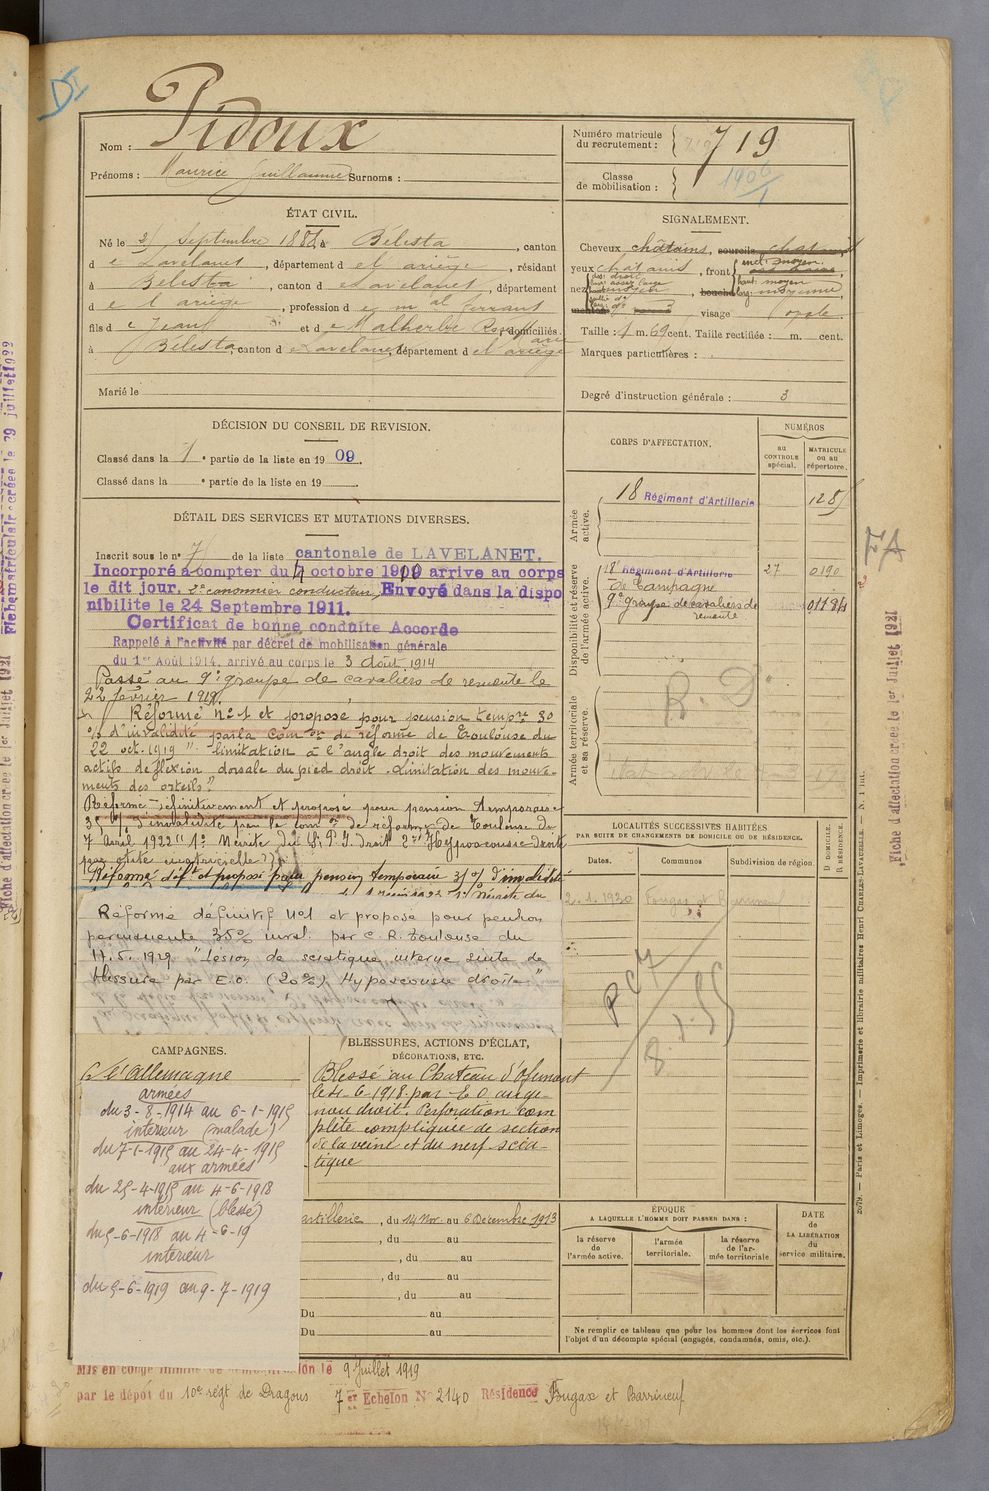 Pidoux
Nom :
Prénoms : Maurice Guillaume Surnoms :
Numéro matricule du recrutement : 719
Classe de mobilisation : 1906
ÉTAT CIVIL.
Né le Septembre 188 à Bélesta, canton
de Lavelanet, département de l'ariège, résidant
à Bélesta, canton de Lavelanet, département
de l'ariège, profession de mal ferrant
fils de Jean et de Malherbe, domiciliés
à Bélesta, canton de Lavelanet, département de l'ariège
Marié le
SIGNALEMENT.
Cheveux châtains, sourcils chatains
yeux chatains, front incl: moyen.
haut: moyen
larg: moyenne
nez dos: droit
bouche
menton visage ovale.
Taille : 1 m. 69 cent. Taille rectifiée : m. cent.
Marques particulières :
Degré d'instruction générale : 3
DÉCISION DU CONSEIL DE REVISION.
Classé dans la 1e partie de la liste en 1909.
Classé dans la e partie de la liste en 19
DÉTAIL DES SERVICES ET MUTATIONS DIVERSES.
Inscrit sous le n° 7 de la liste cantonale de LAVELANET.
Incorporé à compter du 4 octobre 1909 arrive au corps
le dit jour, 2e canonnier conducteur, Envoyé dans la dispo
nibilite le 24 Septembre 1911.
Certificat de bonne conduite Accorde
Rappelé à l'activité par décret de mobilisation générale
du 1er Août 1914, arrivé au corps le 3 Août 1914
Passé au 9e groupe de cavaliers de remonte le
22 février 1919.
Réformé n°1 et proposé pour pension tempre 30
% d'invalidité par la Com on de réforme de Toulouse du
22 oct. 1919 "limitation à l'angle droit des mouvements
actifs de flexion dorsale du pied droit. Limitation des mouve-
ments des orteils"
Réformé définitivement et proposé pour pension temporaire
35 % d'invalidité par la com on de réforme de Toulouse du
7 avril 1922 "1° Névrite du S.P.I. droit 2° Hypoacousie droite
par otite
Réformé déf t et proposé pour pension temporaire 35% d'invalidité
Réformé définitif n°1 et proposé pour pension
permanente 35% inval. par C. R. Toulouse du
17.5.1929 "Lésion de sciatique interne suite de
blessure par E.O. (20%) Hypoacousie droite"
CORPS D'AFFECTATION.
NUMÉROS
AU CONTROLE spécial.
MATRICULE ou au répertoire.
Armée active.
18 Régiment d'Artillerie 1285
Disponibilité et réserve de l'armée active.
18e Régiment d'Artillerie 27 0190
de Campagne
9e groupe de cavaliers de remonte 01184
Armée territoriale et sa réserve.
R D.
LOCALITÉS SUCCESSIVES HABITÉES
PAR SUITE DE CHANGEMENTS DE DOMICILE OU DE RÉSIDENCE.
Dates. Communes Subdivision de région.
D DOMICILE.
R RÉSIDENCE.
1930 Fougax et Barrineuf
CAMPAGNES.
Cre l'allemagne
armées
du 3-8-1914 au 6-1-1915
intérieur (malade)
du 7-1-1915 au 24-4-1915
aux armées
du 25-4-1915 au 4-6-1918
intérieur (blessé)
du 5-6-1918 au 4-6-19
intérieur
du 5-6-1919 au 9-7-1919
BLESSURES, ACTIONS D'ÉCLAT,
DÉCORATIONS, ETC.
Blessé au Chateau d'Ofémont
le 4-6-1918 par E O au ge-
nou droit. Perforation com
plète compliquée de section
de la veine et du nerf scia-
tique
artillerie, du 14 Nov. au 6 Décembre 1913
, du au
, du au
, du au
, du au
Du au
Du au
ÉPOQUE
A LAQUELLE L'HOMME DOIT PASSER DANS :
la réserve de l'armée active.
l'armée territoriale.
la réserve de l'armée territoriale
DATE de LA LIBÉRATION du service militaire.
Ne remplir ce tableau que pour les hommes dont les services font
l'objet d'un décompte spécial (engagés, condamnés, omis, etc.).
Mis en congé illimité de démobilisation le 9 Juillet 1919
par le dépôt du 10e régt de Dragons 7e Echelon N° 2140 Résidence Fougax et Barrineuf
Fiche d'affectation créée le 1er Juillet 1921
2079. — Paris et Limoges. — Imprimerie et librairie militaires Henri CHARLES-LAVAUZELLE.
Fiche matriculaire créée le 29 juillet 1922
Fiche d'affectation créée le 1er Juillet 1921